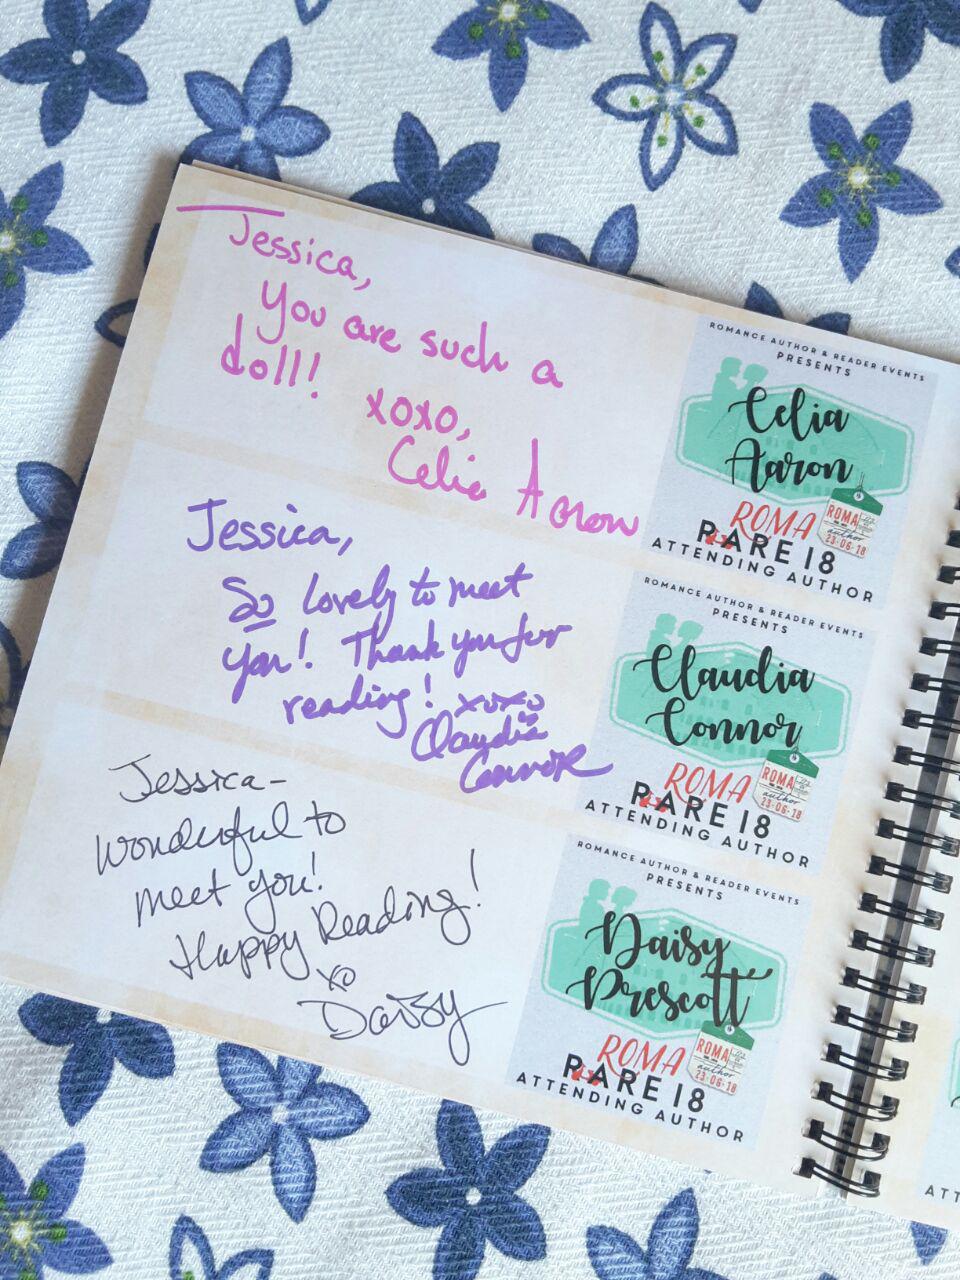 Jessica,
You are such a
doll!
xoxo,
Celia Aaron
ROMANCE AUTHOR & READER EVENTS
PRESENTS
Celia
Aaron
ROMA
RARE18
ATTENDING AUTHOR
ROMA
author
23·06·18
Jessica,
So lovely to meet
you! Thank you for
reading! xoxo
Claudia
Connor
ROMANCE AUTHOR & READER EVENTS
PRESENTS
Claudia
Connor
ROMA
RARE18
ATTENDING AUTHOR
ROMA
author
23·06·18
Jessica-
Wonderful to
meet you!
Happy Reading!
xo
Daisy
ROMANCE AUTHOR & READER EVENTS
PRESENTS
Daisy
Prescott
ROMA
RARE18
ATTENDING AUTHOR
ROMA
author
23·06·18